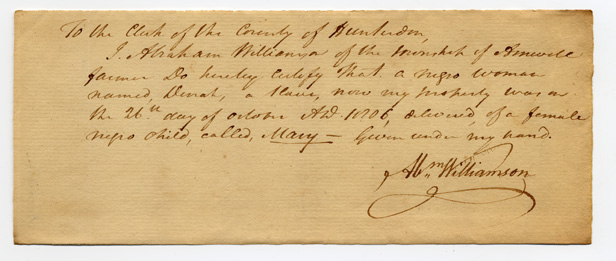 To the Clerk of the County of Hunterdon,
I, Abraham Williamson of the township of Amwell
farmer Do hereby certify that a negro woman
named, Dinah, a slave, now my property was on
the 26.th day of octobr AD. 1806, delivered, of a female
negro child, called, Mary — Given under my hand.
Abm Williamson